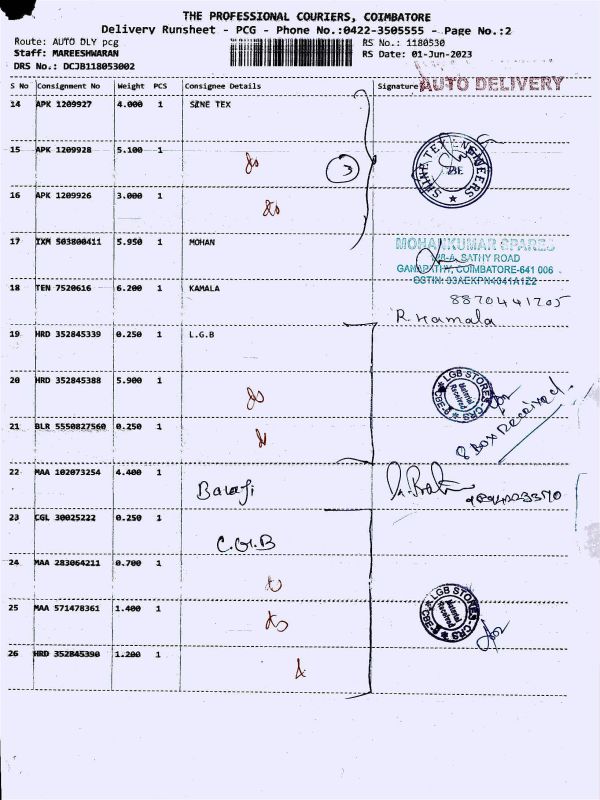 THE PROFESSIONAL COURIERS, COIMBATORE
Delivery Runsheet - PCG - Phone No.:0422-3505555 - Page No.:2
Route: AUTO DLY pcg RS No.: 1180530
Staff: MAREESHWARAN RS Date: 01-Jun-2023
DRS No.: DCJB118053002
S No Consignment No Weight PCS Consignee Details Signature AUTO DELIVERY
14 APK 1209927 4.000 1 SINE TEX
15 APK 1209928 5.100 1 do
3
SINE TEX ENGINEERS CBE
16 APK 1209926 3.000 1 do
17 IXM 503800411 5.950 1 MOHAN
MOHANKUMAR SPARES
SATHY ROAD
GANAPATHY, COIMBATORE-641 006
18 TEN 7520616 6.200 1 KAMALA 8870441705
R. Kamala
19 HRD 352845339 0.250 1 L.G.B
20 HRD 352845388 5.900 1 do
LGB STORES-CRS CBE-6 Material Received
8 Box Received.
21 BLR 5550827560 0.250 1
22 MAA 102073254 4.400 1 Balaji
23 CGL 30025222 0.250 1 L.G.B
24 MAA 283064211 0.700 1
25 MAA 571478361 1.400 1 do
LGB STORES-CRS CBE-6 Material Received
26 HRD 352845390 1.200 1